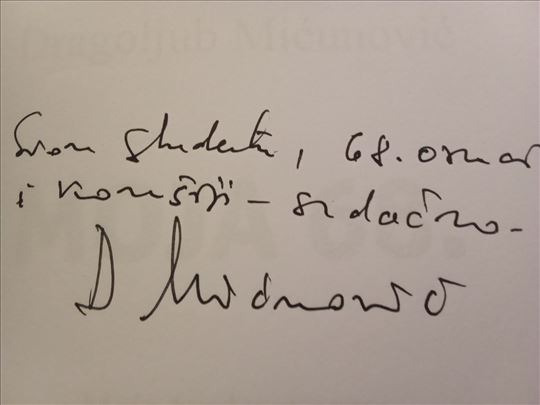 Dragoljub Mićunović
Svom studentu, 68. osmaš
i komšiji – srdačno –
D Mićunović
MOJA 68.